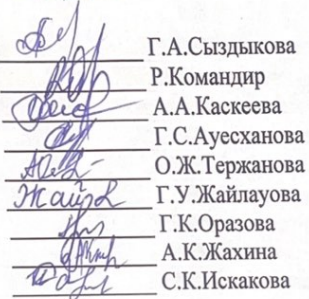 Г.А.Сыздыкова
Р.Командир
А.А.Каскеева
Г.С.Ауесханова
О.Ж.Тержанова
Г.У.Жайлауова
Г.К.Оразова
А.К.Жахина
С.К.Искакова